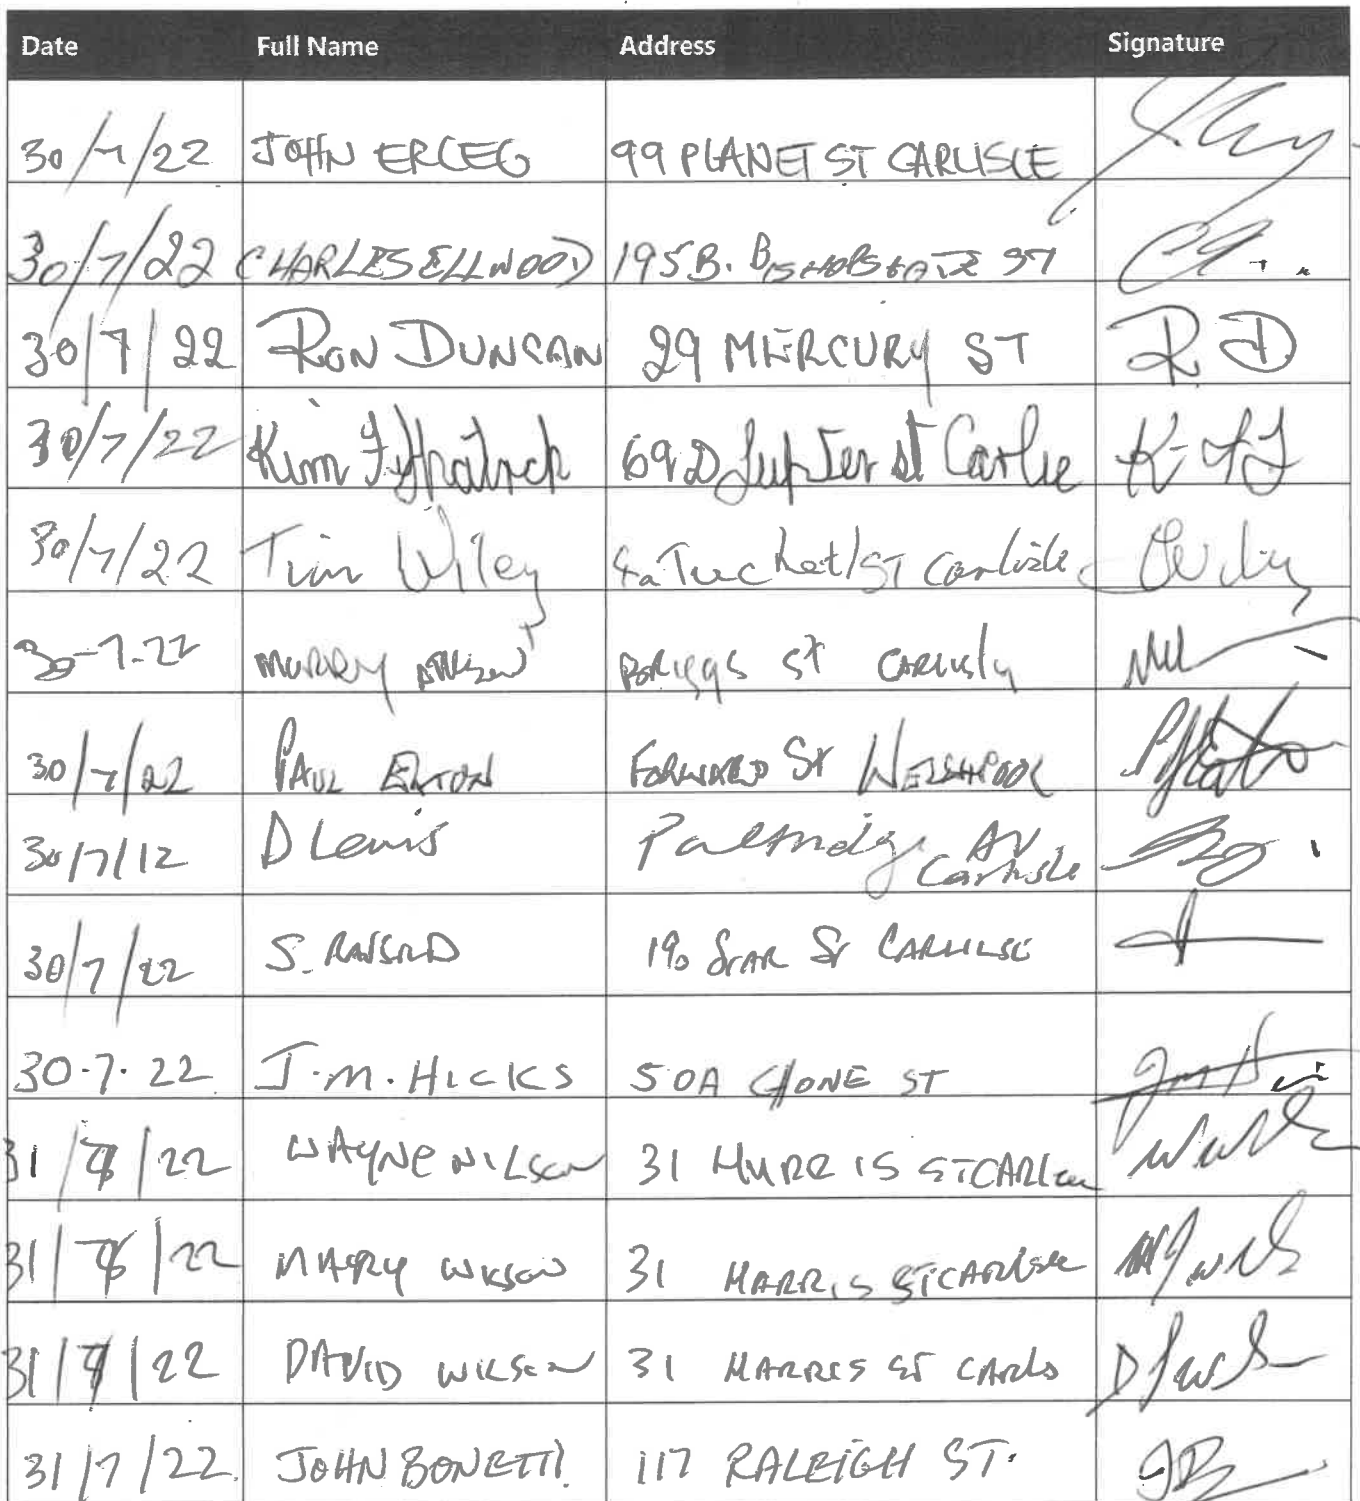 Date Full Name Address Signature
30/7/22 JOHN ERCEG 99 PLANET ST CARLISLE
30/7/22 CHARLES ELLWOOD 195B. BISHOPSGATE ST
30/7/22 RON DUNCAN 29 MERCURY ST R D
30/7/22 Kim Fitzpatrick 69D Jupiter st Carlie K-FJ
30/7/22 Tim Wiley 4a Tucket/ST Carlisle
30-7-22 MURRY BRIGGS ST
30/7/22 PAUL FORWARD ST WELSHPOOL
30/7/12 D Lewis AV
Carlisle
30/7/22 S. STAR ST CARLILSE
30.7.22 J.M. HICKS 50A ST
31/7/22 WAYNE WILSON 31 ST
31/7/22 WILSON 31 HARRIS ST
31/7/22 DAVID WILSON 31 HARRIS ST
31/7/22 JOHN BONETTI 117 RALEIGH ST.